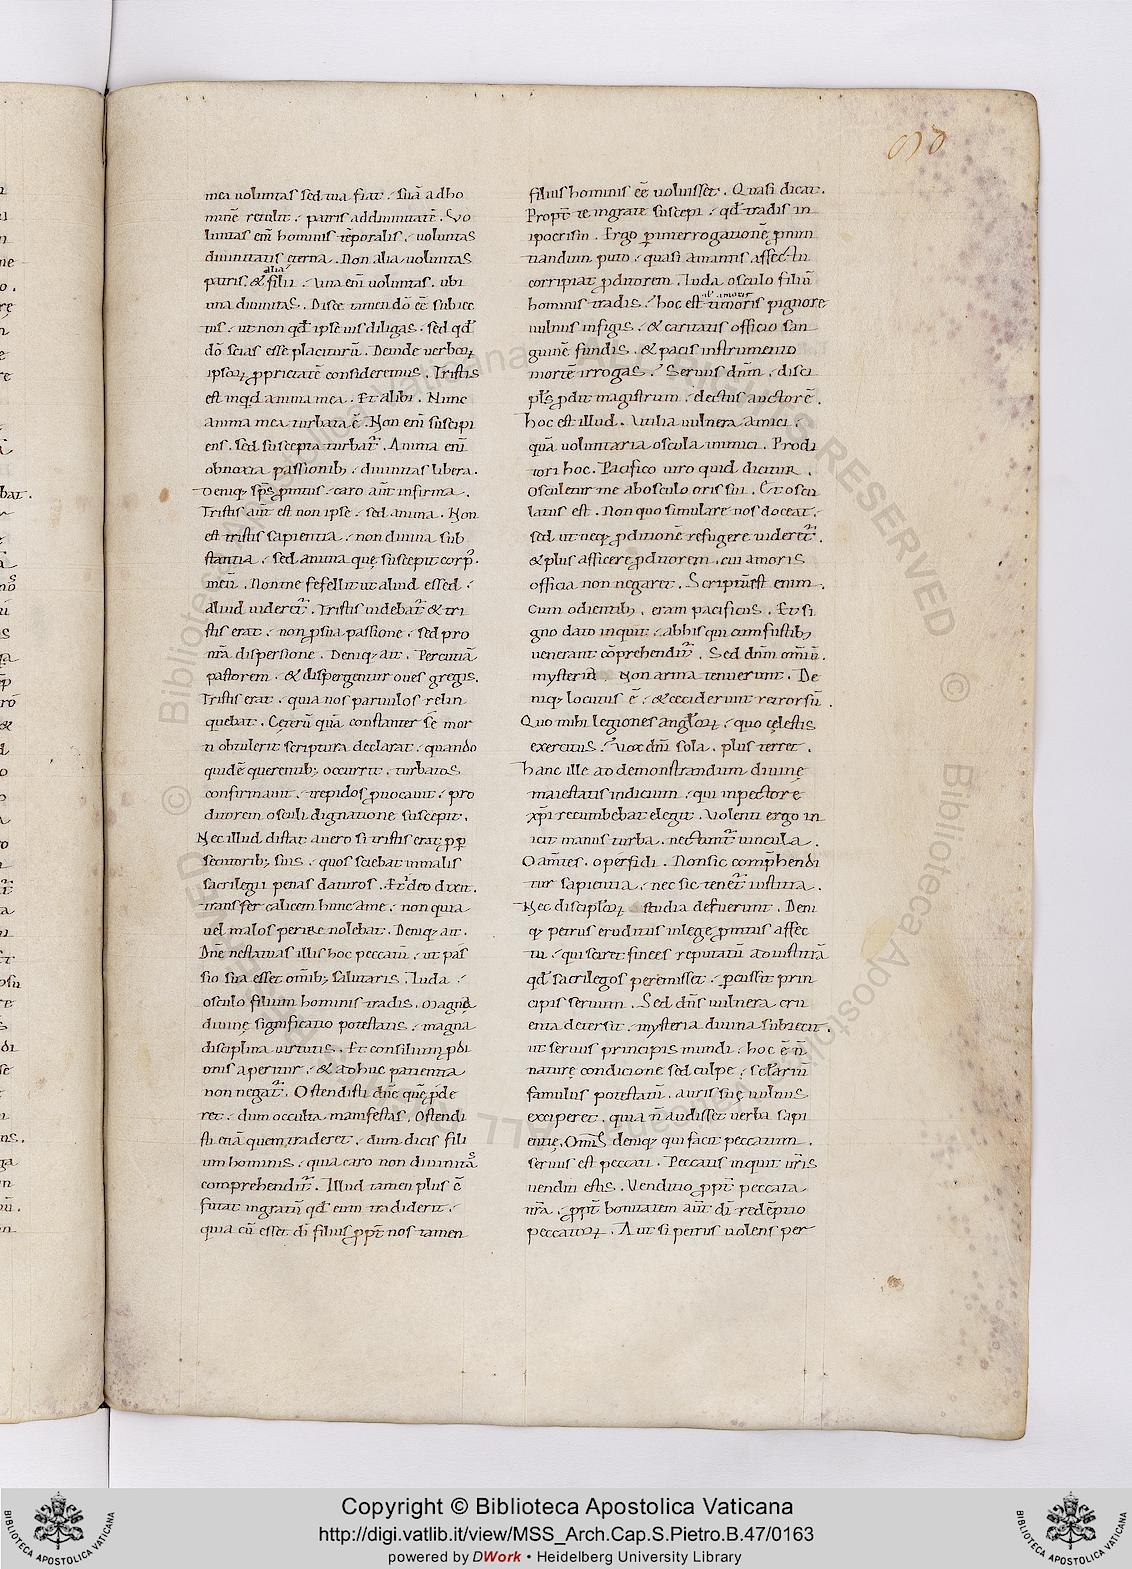 mea uoluntas sed tua fiat . suā ad ho
minē retulit . patris ad diuinitatē . Vo
luntas eni͞ hominis tēporalis . uoluntas
diuinitatis ęterna . Non alia uoluntas
alia
patris . & filii . Una eni͞ uoluntas . ubi
una diuinitas . Disce tamen dō eē subiec
tus . ut non qd ipse uis diligas . sed qd
dō scias esse placiturū . Deinde uerboꝝ
ipsoꝝ ꝓprietatē consideremus . Tristis
est inqd anima mea . Et alibi . Nunc
anima mea turbata ē . Non eni͞ suscipi
ens . sed suscepta turbat᷑ . Anima eni͞
obnoxia passionib; . diuinitas libera .
Deniq; sp̄s ꝓmtus . caro aut̄ infirma .
Tristis aut̄ est non ipse . sed anima . Non
est tristis sapientia . non diuina sub
stantia . sed anima quę suscepit corp᷒
meū . Non me fefellit ut aliud essed .
aliud uideret᷑ . Tristis uidebat᷑ & tri
stis erat . non ꝓ sua passione . sed pro
nr̄a dispersione . Deniq; ait . Percutiā
pastorem . & dispergentur oues gregis .
Tristis erat . quia nos paruulos relin
quebat . Cęterū quā constanter se mor
ti obtulerit scriptura declarat . quando
quidē querentib; occurrit . turbatos
confirmauit . trepidos ꝓuocauit . pro
ditorem osculi dignatione suscepit .
Nec illud distat a uero si tristis erat ꝓ p
secutorib; suis . quos sciebat inmalis
sacrilegii penas daturos . Et ideo dixit .
Transfer calicem hunc ame . non quia
uel malos perire nolebat . Deniq; ait .
Dn̄e ne statuas illis hoc peccatū . ut pas
sio sua esset omib; salutaris . Iuda .
osculo filium hominis tradis . Magna
diuinę significatio potestatis . magna
disciplina uirtutis . Et consilium ꝓdi
onis aperitur . & adhuc patientia
non negat᷑ . Ostendisti dn̄e quę ꝓde
ret . dum occulta manifestas . Ostendi
sti etiā quem traderet . dum dicis fili
um hominis . quia caro non diuinitas
comprehendit᷑ . Illud tamen plus c̄
futat ingratū qd eum tradiderit .
quia cū esset di͞ filius ꝓpt̄ nos tamen
filius hominis eē uoluisset . Quasi dicat .
Propt̄ te ingrate suscepi . qd tradis in
ipocrisin . Ergo ꝑ interrogationē ꝓnun
tiandum puto . quasi amantis affectu
corripiat ꝓditorem . Iuda osculo filiū
al amoris
hominis tradis . hoc est timoris pignore
uulnus infigis . & caritatis officio san
guinē fundis . & pacis instrumento
mortē irrogas . Seruus dnm̄ . disci
pl̄s ꝓdit magistrum . electus auctorē .
hoc est illud . Utilia uulnera amici .
quā uoluntaria oscula inimici . Prodi
tori hoc . Pacifico uiro quid dicitur .
Osculetur me ab osculo oris sui . Et oscu
latus est . Non quo simulare nos doceat .
sed ut neq; ꝓditionē refugere uideret᷑ .
& plus afficere ꝓditorem . cui amoris
officia non negaret . Scriptū est enim .
Cum odientib; . eram pacificus . Et si
gno dato inquit . ab his qui cum fustib;
uenerant cōprehendit᷑ . Sed dnm̄ omiū .
mysteria . Non arma tenuerunt . De
niq; locutus ē . & ceciderunt retrorsū .
Quo mihi legiones angl̄oꝝ . quo cęlestis
exercitus . Vox dni͞ sola . plus terret .
hanc ille ad demonstrandum diuinę
maiestatis indicium . qui in pectore
xp̄i recumbebat elegit . Violenti ergo in
icit manus turba . nectunt᷑ uincula .
O amtes . o perfidi . Non sic comp̄hendi
tur sapientia . nec sic tenet᷑ iustitia .
Nec discipl̄oꝝ studia defuerunt . Deni
q; petrus eruditus in lege ꝓmtus affec
tu . qui sciret finees reputatū ad iustitiā
qd sacrilegos peremisset . ꝑcussit prin
cipis seruum . Sed dn̄s uulnera cru
enta detersit . mysteria diuina subiecit .
ut seruus principis mundi . hoc ē n̄
naturę condicione sed culpę . sc̄lariū
famulus potestatū . auris suę uulnus
exciperet . quia n̄ audisset uerba sapi
entię . Omīs deniq; qui facit peccatum .
seruus est peccati . Peccatis inquit ur̄is
uenditi estis . Venditio ꝓpt̄ peccata
nr̄a . ꝓpt̄ bonitatem aut̄ di͞ redēptio
peccatoꝝ . Aut si petrus uolens per
Copyright © Biblioteca Apostolica Vaticana
http://digi.vatlib.it/view/MSS_Arch.Cap.S.Pietro.B.47/0163
powered by DWork • Heidelberg University Library